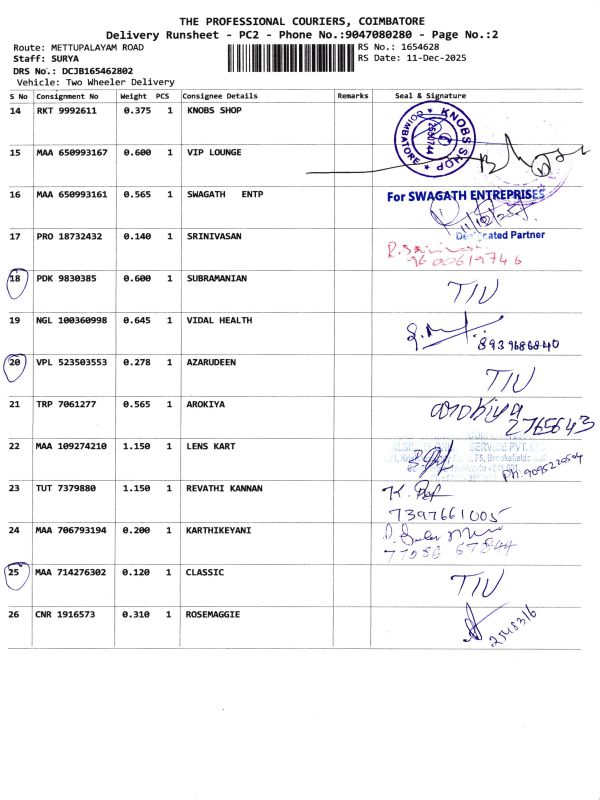 THE PROFESSIONAL COURIERS, COIMBATORE
Delivery Runsheet - PC2 - Phone No.:9047080280 - Page No.:2
Route: METTUPALAYAM ROAD
RS No.: 1654628
Staff: SURYA
RS Date: 11-Dec-2025
DRS No.: DCJB165462802
Vehicle: Two Wheeler Delivery
S No Consignment No Weight PCS Consignee Details Remarks Seal & Signature
14 RKT 9992611 0.375 1 KNOBS SHOP
KNOBS SHOP * COIMBATORE *
15 MAA 650993167 0.600 1 VIP LOUNGE
16 MAA 650993161 0.565 1 SWAGATH ENTP For SWAGATH ENTREPRISES
11/12/25
17 PRO 18732432 0.140 1 SRINIVASAN
Partner
9600619746
18 PDK 9830385 0.600 1 SUBRAMANIAN TIU
19 NGL 100360998 0.645 1 VIDAL HEALTH
8939686840
20 VPL 523503553 0.278 1 AZARUDEEN TIU
21 TRP 7061277 0.565 1 AROKIYA arokiya
2765643
22 MAA 109274210 1.150 1 LENS KART
23 TUT 7379880 1.150 1 REVATHI KANNAN
7397661005
24 MAA 706793194 0.200 1 KARTHIKEYANI
25 MAA 714276302 0.120 1 CLASSIC TIU
26 CNR 1916573 0.310 1 ROSEMAGGIE
2548316